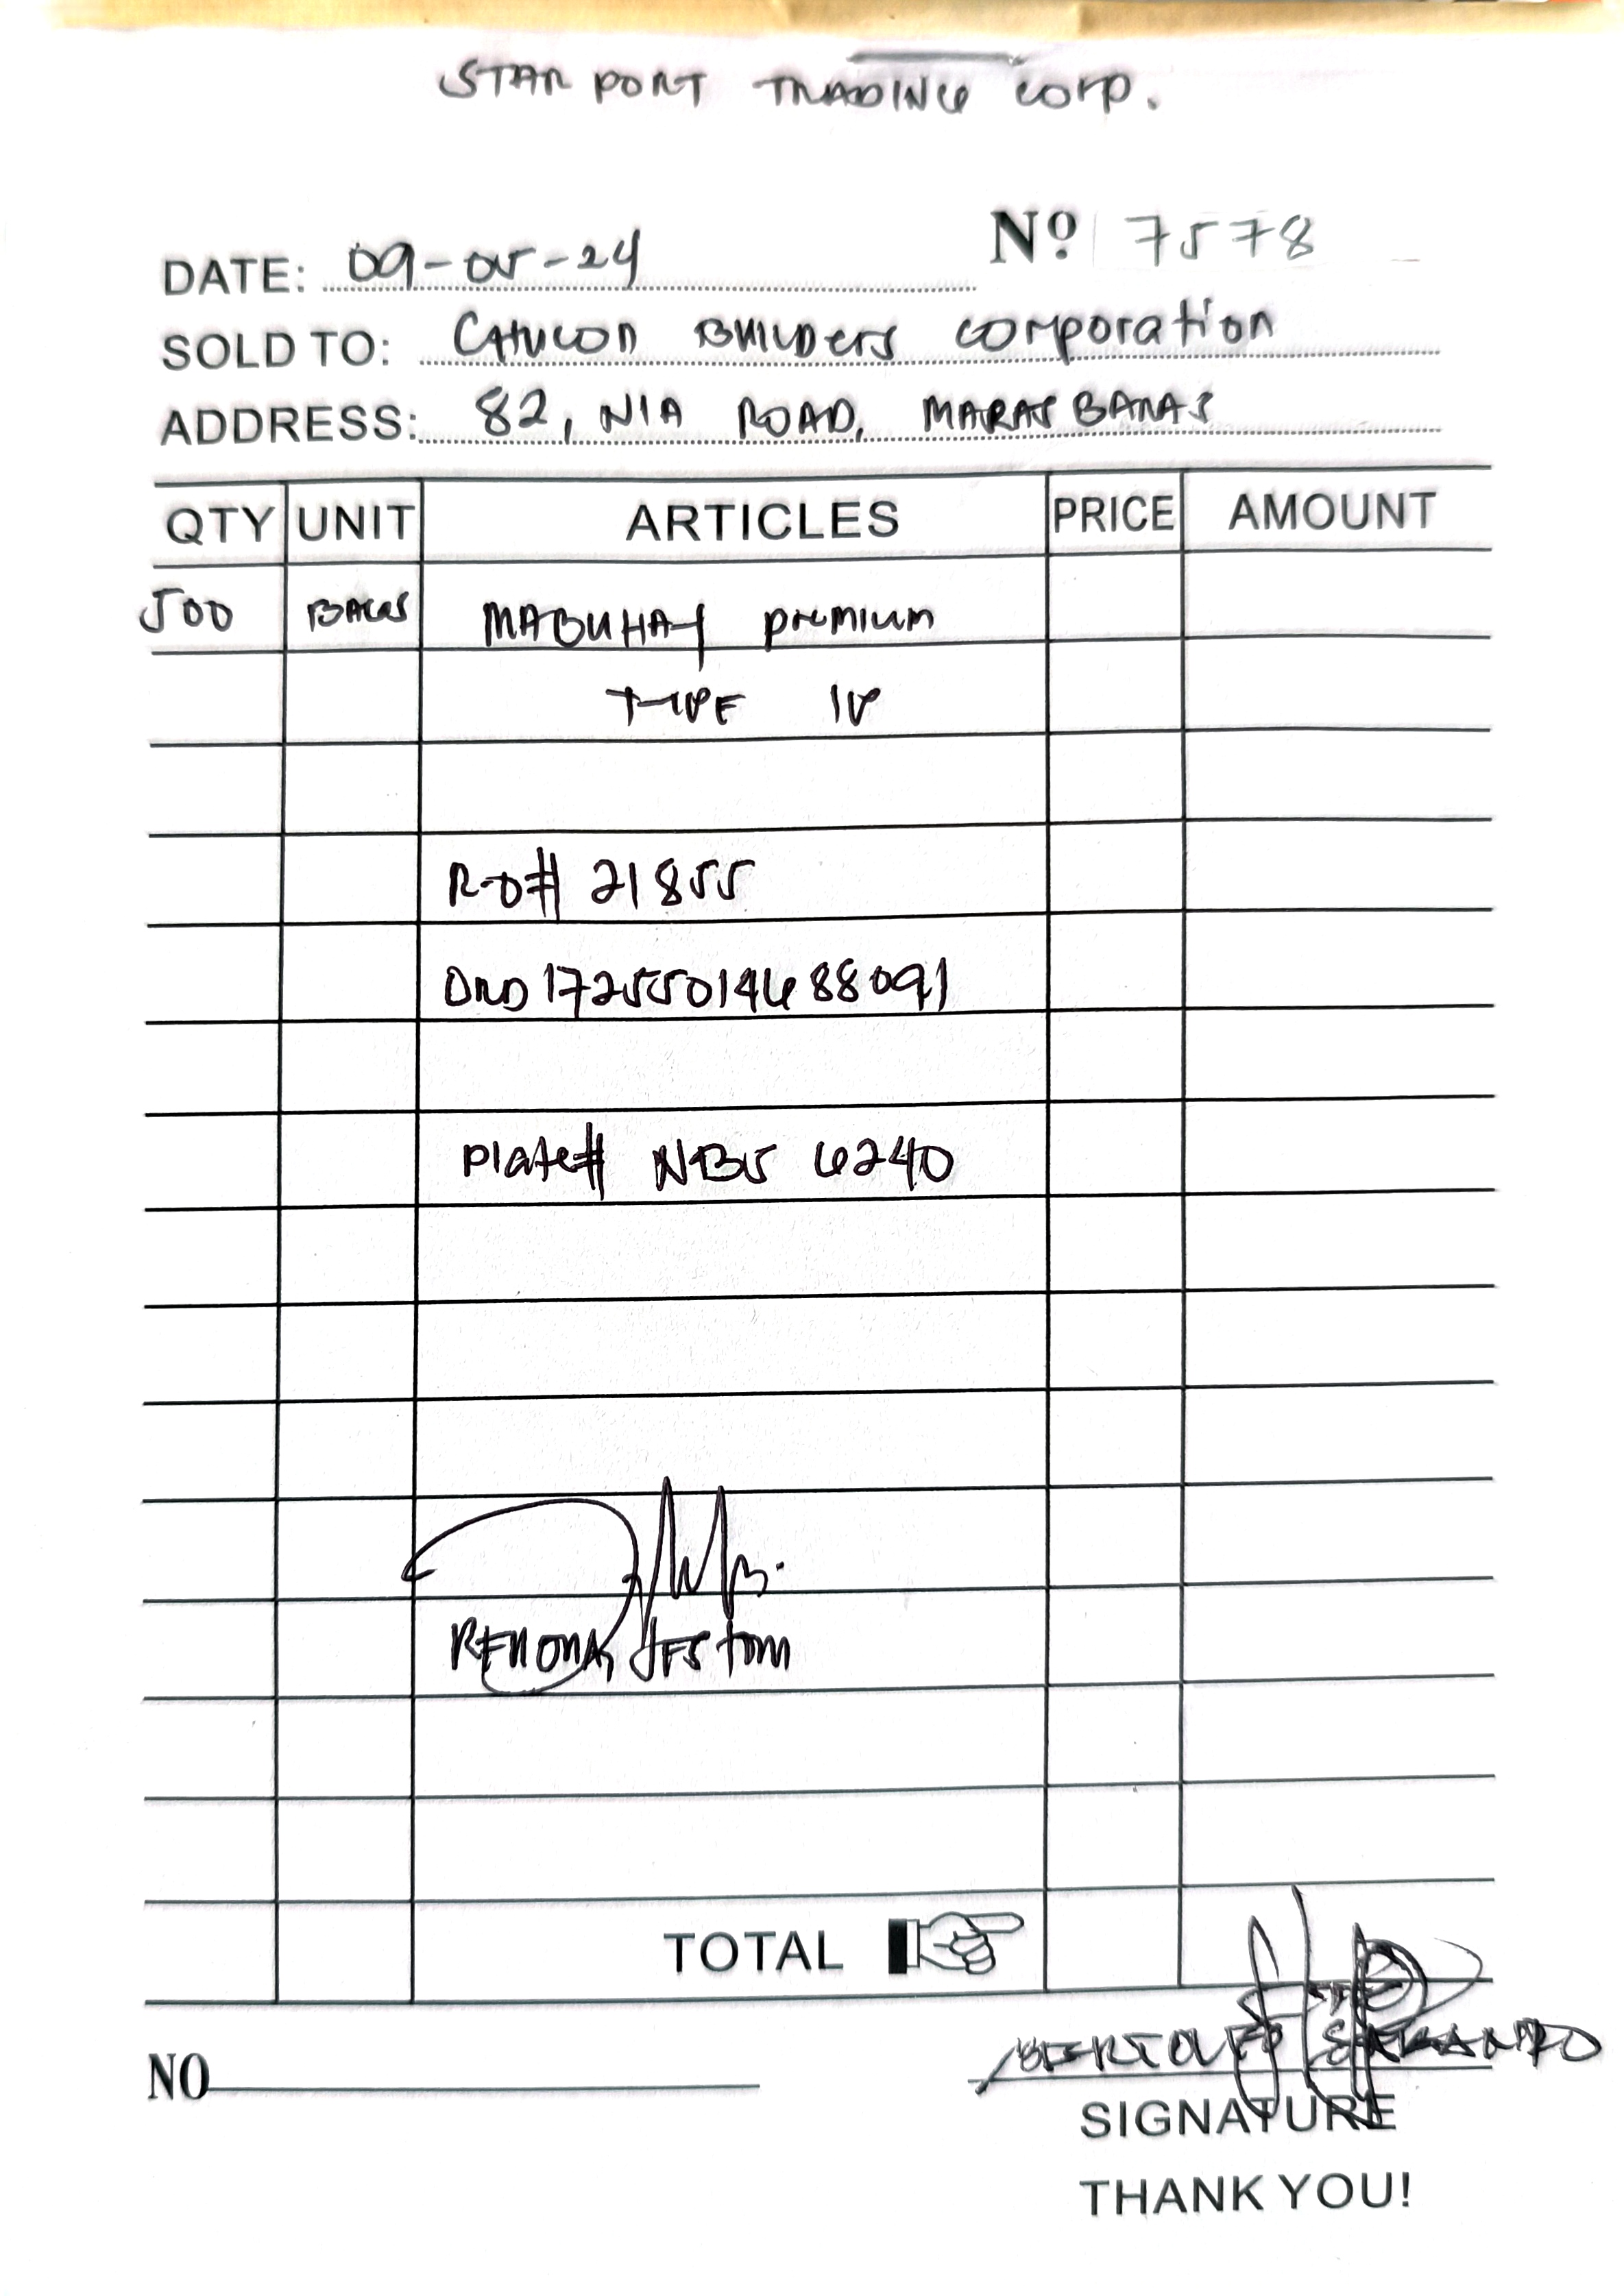 STAR PORT TRADING CORP.
Nº 7578
DATE: 09-05-24
SOLD TO: CATULCOD BUILDERS corporation
ADDRESS: 82, NIA ROAD, MARAS BANAS
QTY UNIT ARTICLES PRICE AMOUNT
500 BAGS MABUHAY premium
TYPE 1P
R-O# 21855
ORD 17255014688091
Plate# NBS 6240
TOTAL
NO
SIGNATURE
THANK YOU!